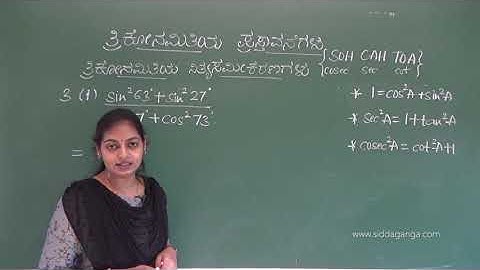 ತ್ರಿಕೋನಮಿತಿಯ ಪ್ರಸ್ತಾವನೆಗಳು
{SOH CAH TOA}
ತ್ರಿಕೋನಮಿತಿಯ ನಿತ್ಯಸಮೀಕರಣಗಳು
cosec sec cot
3 (i) sin²63° + sin²27°
7° + cos²73°
=
* 1 = cos²A + sin²A
* sec²A = 1 + tan²A
* cosec²A = cot²A + 1
www.siddaganga.com